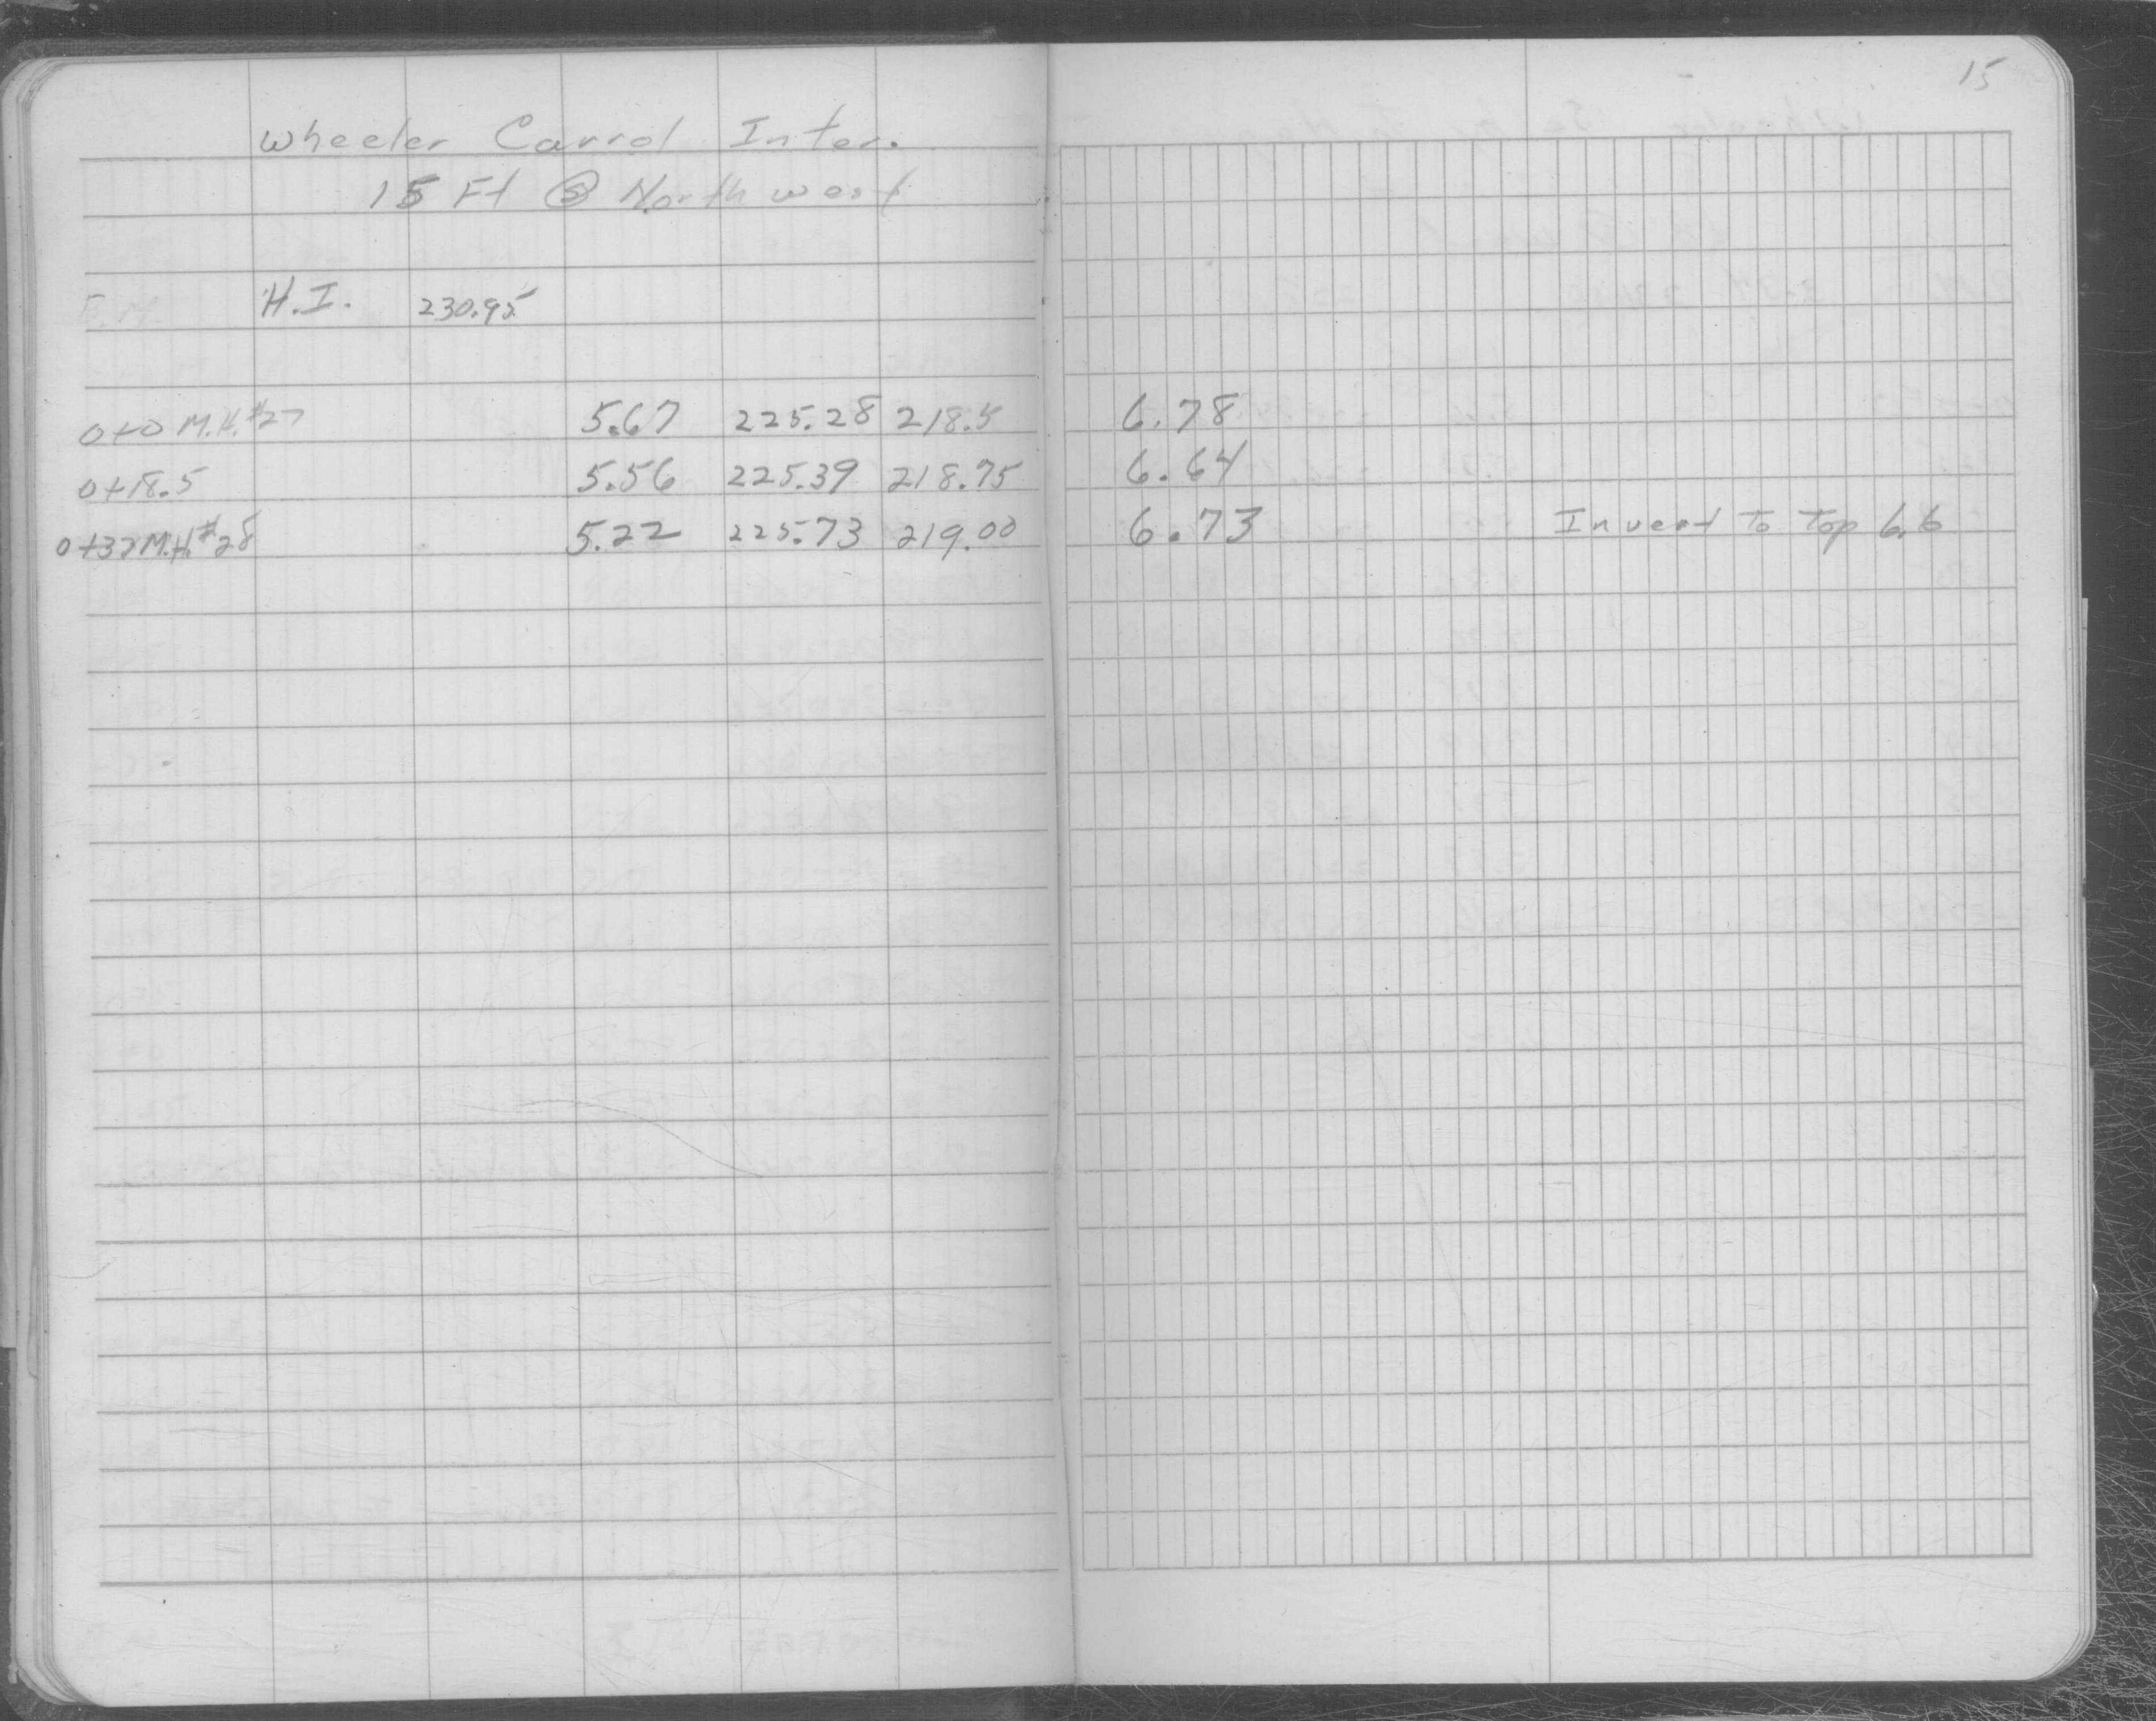 15
Wheeler Carrol Inter.
15 Ft @ North west
H.I. 230.95
0+0 M.H.#27 5.67 225.28 218.5 6.78
0+18.5 5.56 225.39 218.75 6.64
0+37 M.H.#28 5.22 225.73 219.00 6.73 Invert To Top 6.6